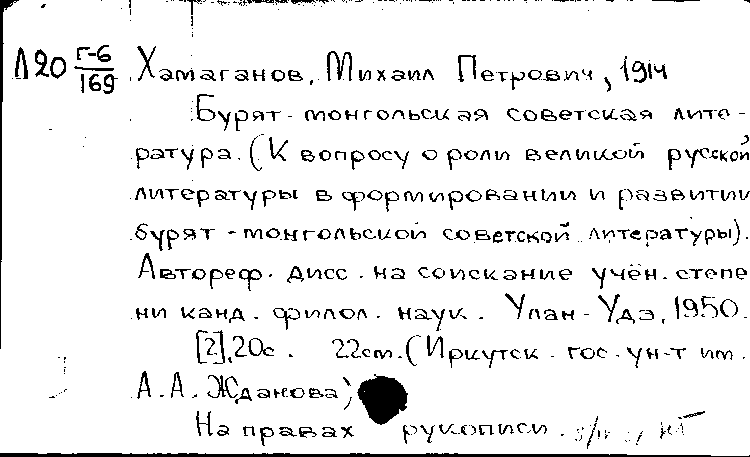 Л20 Г-6/169 Хамаганов, Михаил Петрович, 1914
Бурят-монгольская советская лите-
ратура. (К вопросу о роли великой русской
литературы в формировании и развитии
бурят-монгольской советской литературы).
Автореф. дисс. на соискание учён. степе
ни канд. филол. наук. Улан-Удэ, 1950.
[2], 20с. 22см. (Иркутск. гос. ун-т им.
А.А. Жданова)
На правах рукописи.